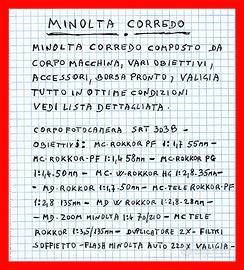 MINOLTA CORREDO
MINOLTA CORREDO COMPOSTO DA
CORPO MACCHINA, VARI OBIETTIVI,
ACCESSORI, BORSA PRONTO, VALIGIA
TUTTO IN OTTIME CONDIZIONI
VEDI LISTA DETTAGLIATA.
CORPO FOTOCAMERA SRT 303B -
OBIETTIVI: MC-ROKKOR PF 1:1,7 55mm -
MC-ROKKOR-PF 1:1,4 58mm - MC-ROKKOR PG
1:1,4.50mm - MC-W-ROKKOR HG 1:2,8.35mm -
- MD-ROKKOR 1:1,7.50mm - MC-TELE ROKKOR-PF
1:2,8 135mm - MD W ROKKOR 1:2,8-28mm -
- MD-ZOOM MINOLTA 1:4 70/210 - MC TELE
ROKKOR 1:3,5/135mm - DUPLICATORE 2X - FILTRI
SOFFIETTO - FLASH MINOLTA AUTO 220X VALIGIA -